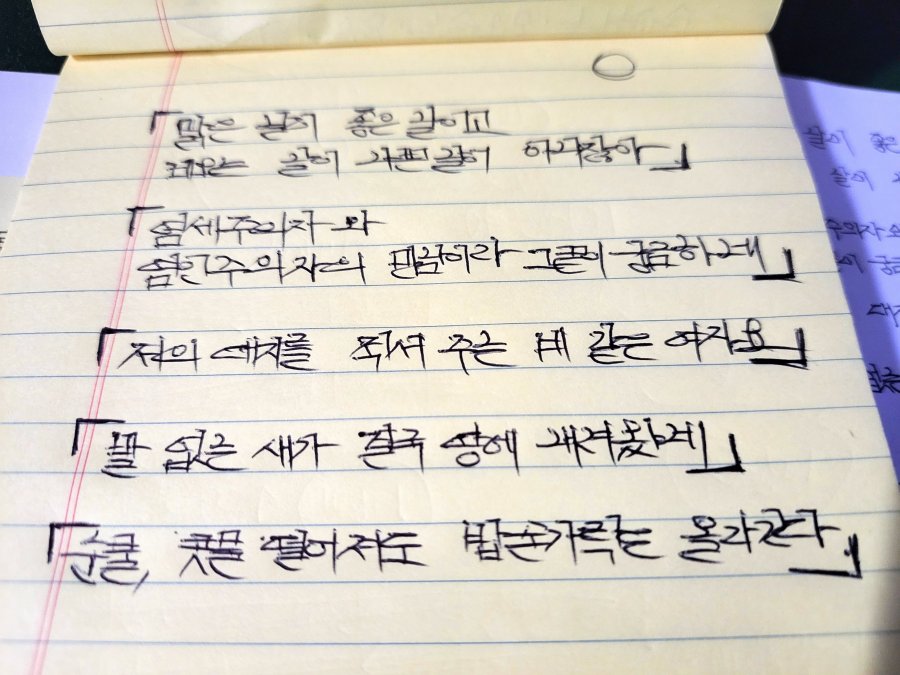 「맑은 날이 좋은 날이고
날이 나쁜 날이 아니잖아」
「염세주의자와
염인주의자의 만남이라 그끝이 궁금하네」
「저의 에피를 적셔 주는 비 같은 여자요」
「발 없는 새가 결국 땅에 내려왔네」
「눈물, 콧물 떨어져도 밥숟가락은 올라간다.」